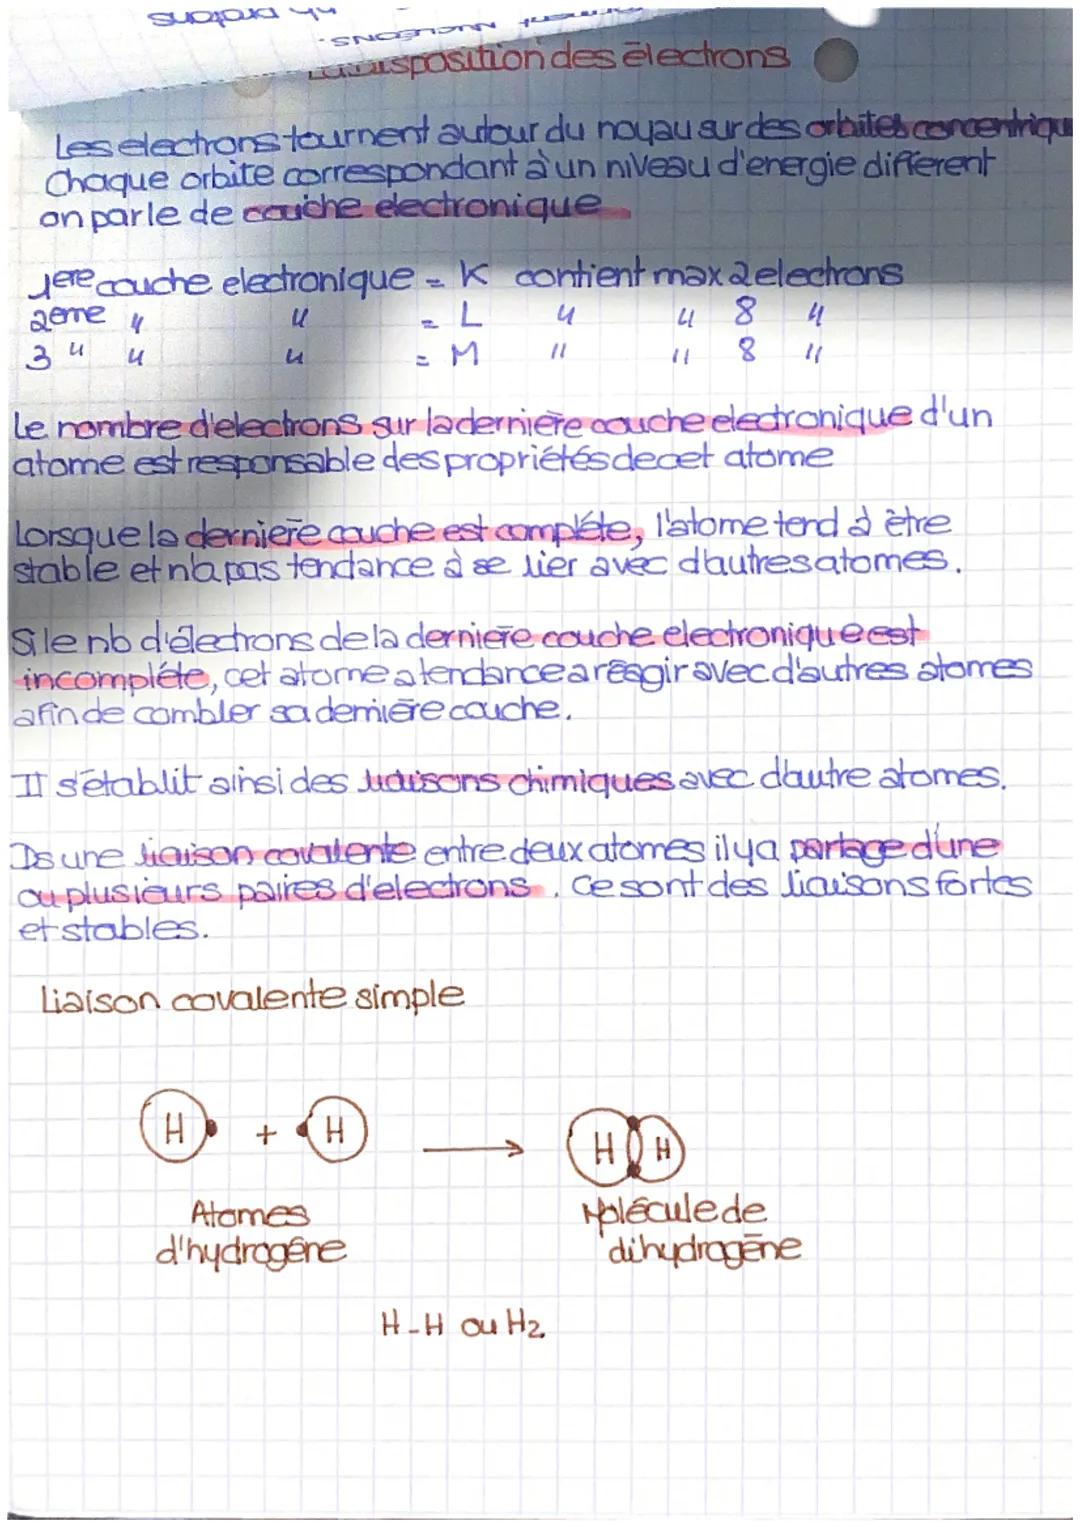 nb protons
NUCLEONS.
disposition des électrons
Les electrons tournent autour du noyau sur des orbites concentriqu
Chaque orbite correspondant à un niveau d'energie different
on parle de couche electronique
1ere couche electronique = K contient max 2 electrons
2eme " " = L " " 8 "
3 " " " = M " " 8 "
Le nombre d'electrons sur la dernière couche electronique d'un
atome est responsable des propriétés de cet atome
Lorsque la derniere couche est complète, l'atome tend à être
stable et n'a pas tendance à se lier avec d'autres atomes.
Si le nb d'électrons de la derniere couche electronique est
incomplète, cet atome a tendance a réagir avec d'autres atomes
afin de combler sa dernière couche.
Il s'établit ainsi des liaisons chimiques avec d'autre atomes.
Ds une liaison covalente entre deux atomes il y a partage d'une
ou plusieurs paires d'electrons. Ce sont des liaisons fortes
et stables.
Liaison covalente simple
H + H → H H
Atomes Molécule de
d'hydrogène dihydrogène
H-H ou H2